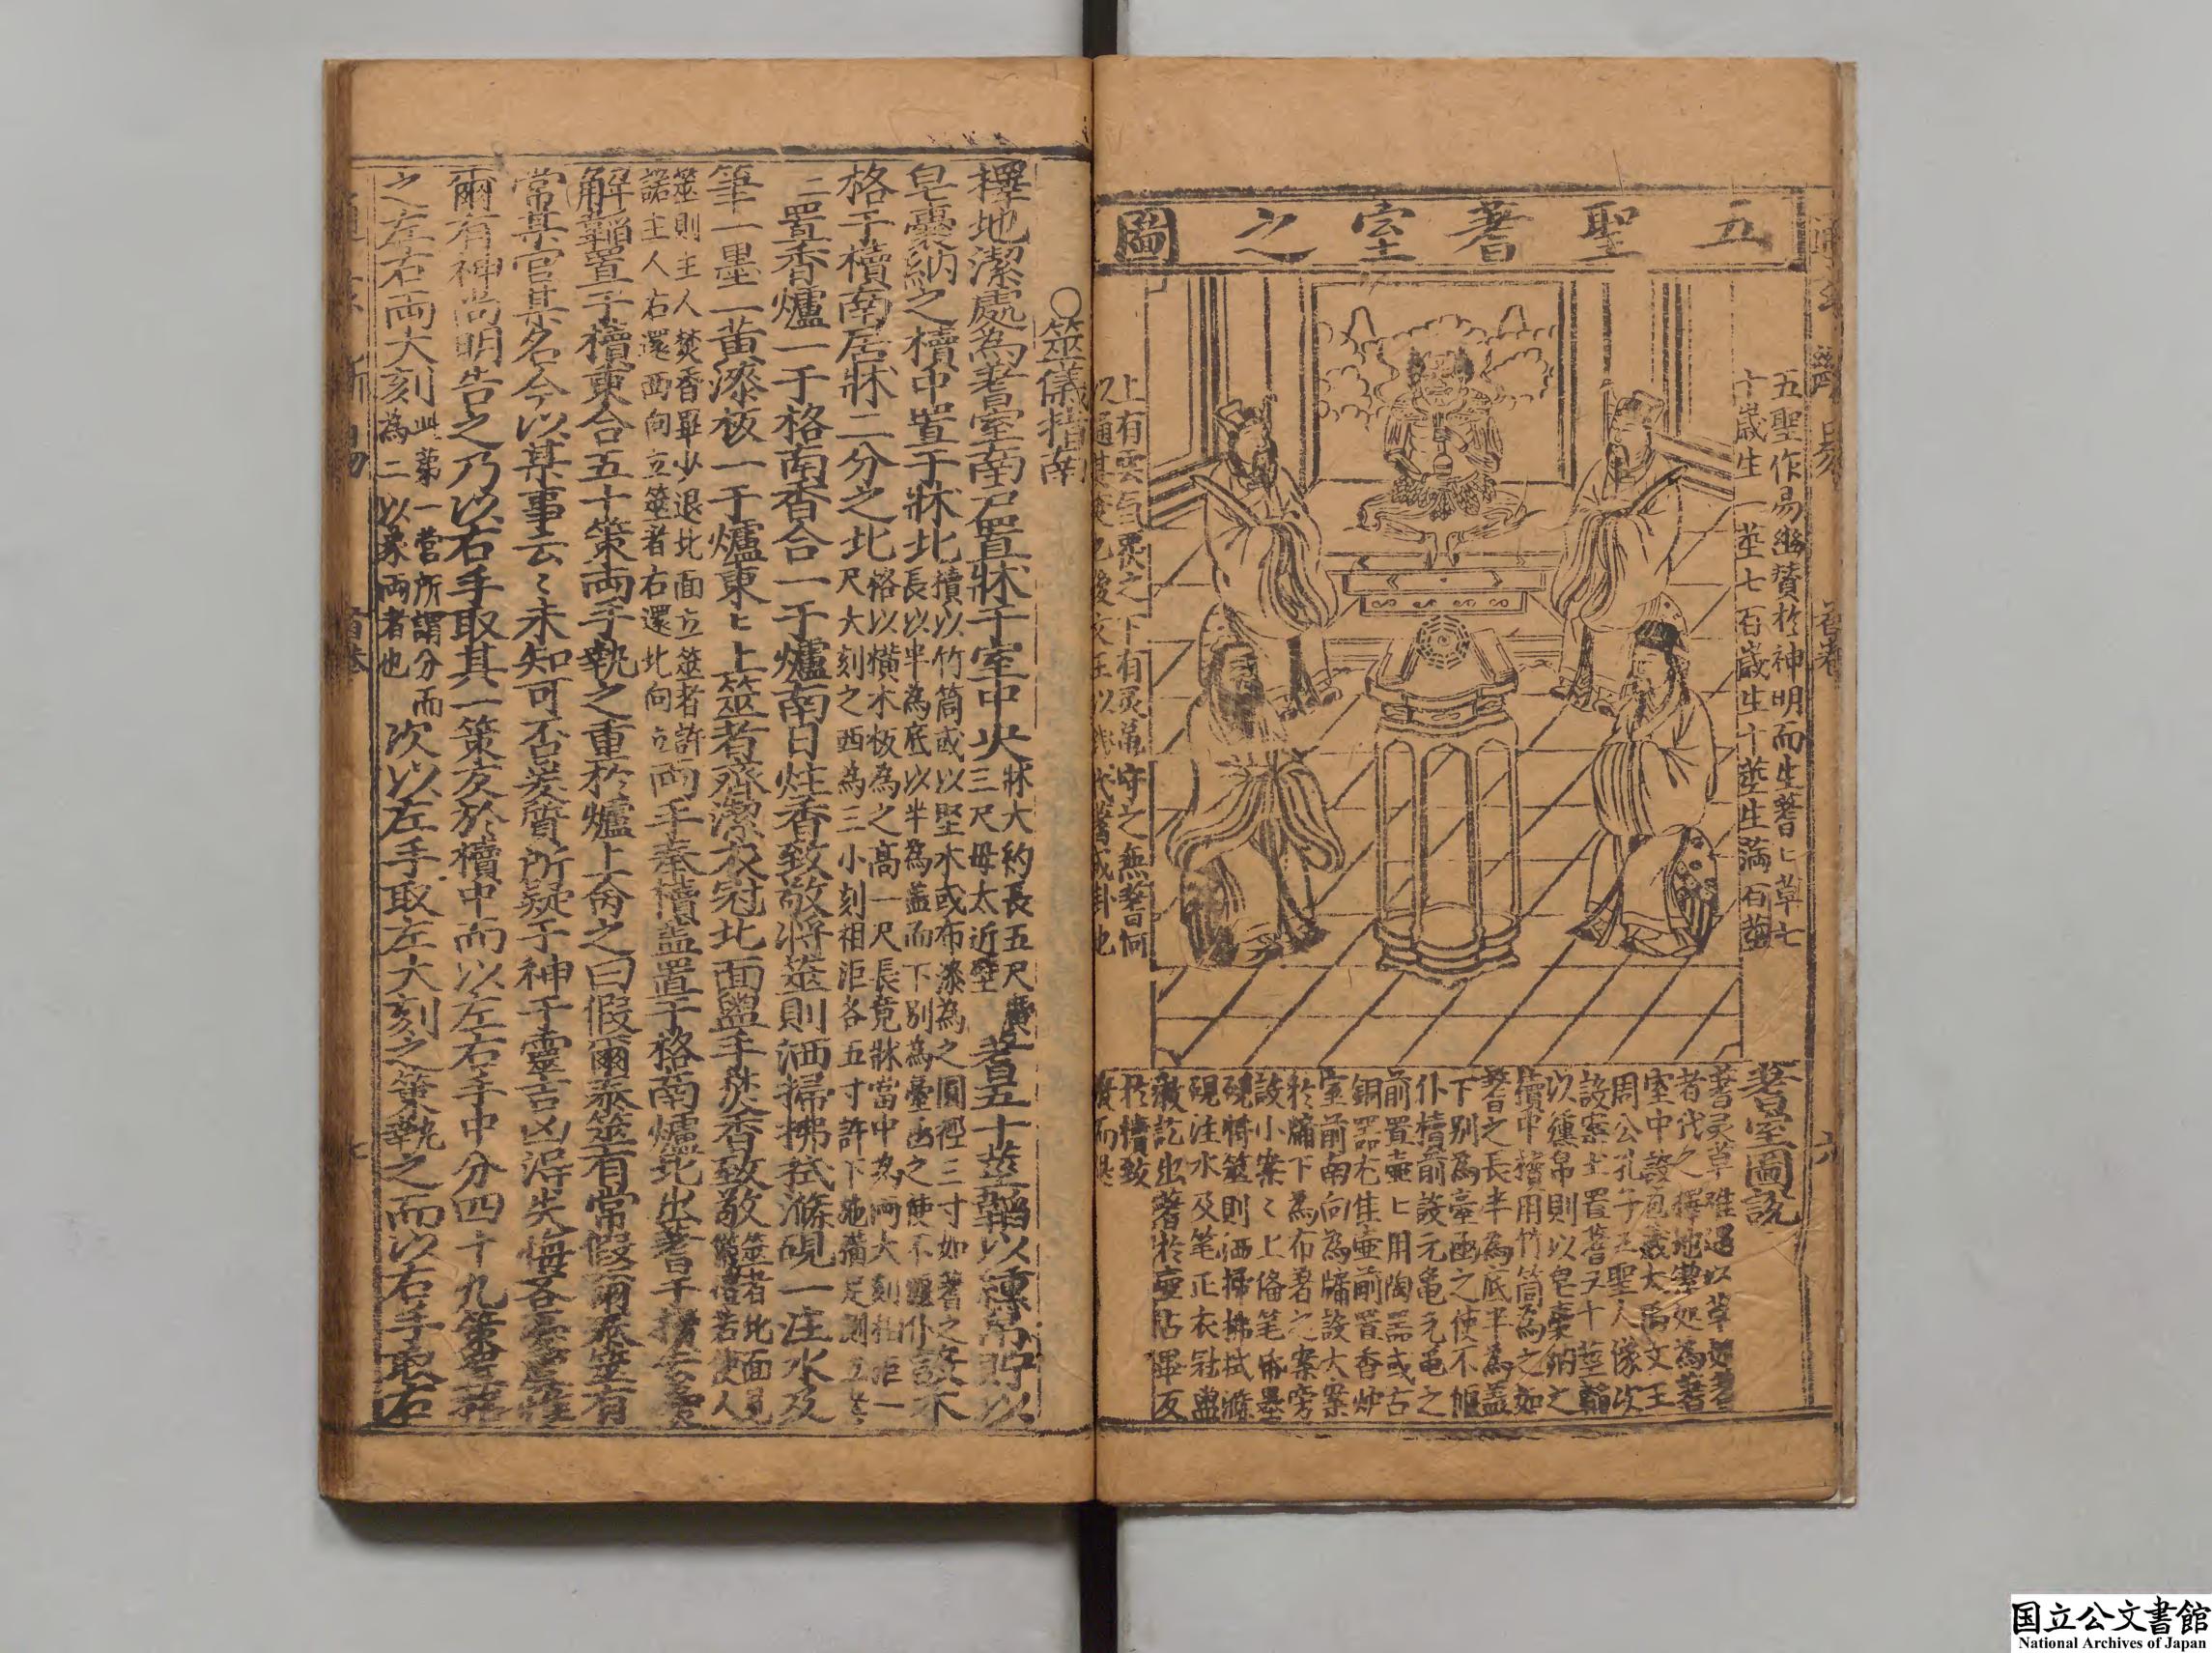 五聖蓍室之圖
五聖作易幽贊於神明而生蓍匕草七
十歲生一莖七百歲生十莖生滿百莖
上有雲气覆之下有灵龜守之無蓍何
蓍室圖說
者代之擇地潔処為蓍
室中設庖羲大禹文王
周公孔子五聖人像次
設案上置蓍五十莖韜
以纁帛則以皂囊納之
櫝中櫝用竹筒為之如
蓍之長半為底半為盖
下別為臺函之使不偃
仆櫝前設元龜元龜之
前置壷匕用陶器或古
銅器尤佳壷前置香炉
室前南向為牖設大案
於牖下為布蓍之案旁
設小案〻上俻笔硯墨
硯將筮則洒掃拂拭滌
硯注水及笔正衣冠盥
敬訖出蓍於壷占畢反
於櫝致
敬而
○筮儀指南
擇地潔處為蓍室南戸置牀于室中央
牀大約長五尺廣
三尺毋太近壁
蓍五十莖韜以纁帛貯以
皂囊納之櫝中置于牀北
櫝以竹筒或以堅木或布漆為之圓徑三寸如蓍之
長以半為底以半為盖而下別為臺函之使不偃仆
設木
格于櫝南居牀二分之北
格以横木板為之高一尺長竟牀當中為兩大刻相距一
尺大刻之西為三小刻相距各五寸許下施
二置香爐一于格南香合一于爐南日炷香致敬將筮則洒掃拂拭滌硯一注水及
筆一墨一黄漆板一于爐東匕上筮者齊潔衣冠北面盥手焚香致敬
筮者北面見
筮則主人焚香畢少退北面立筮者許
諾主人右還西向立筮者右還北向立
兩手奉櫝盖置于格南爐北出蓍于櫝去囊
解韜置于櫝東合五十策兩手執之重於爐上命之曰假爾泰筮有常假爾泰筮有
常某官某名今以某事云〻未知可否爰質所疑于神于靈吉凶得失悔吝憂虞惟
爾有神尚明告之乃以右手取其一策反於櫝中而以左右手中分四十九策置格
之左右兩大刻
此第一營所謂分而
為二以象兩者也
次以左手取左大刻之策執之而以右手取右
国立公文書館
National Archives of Japan